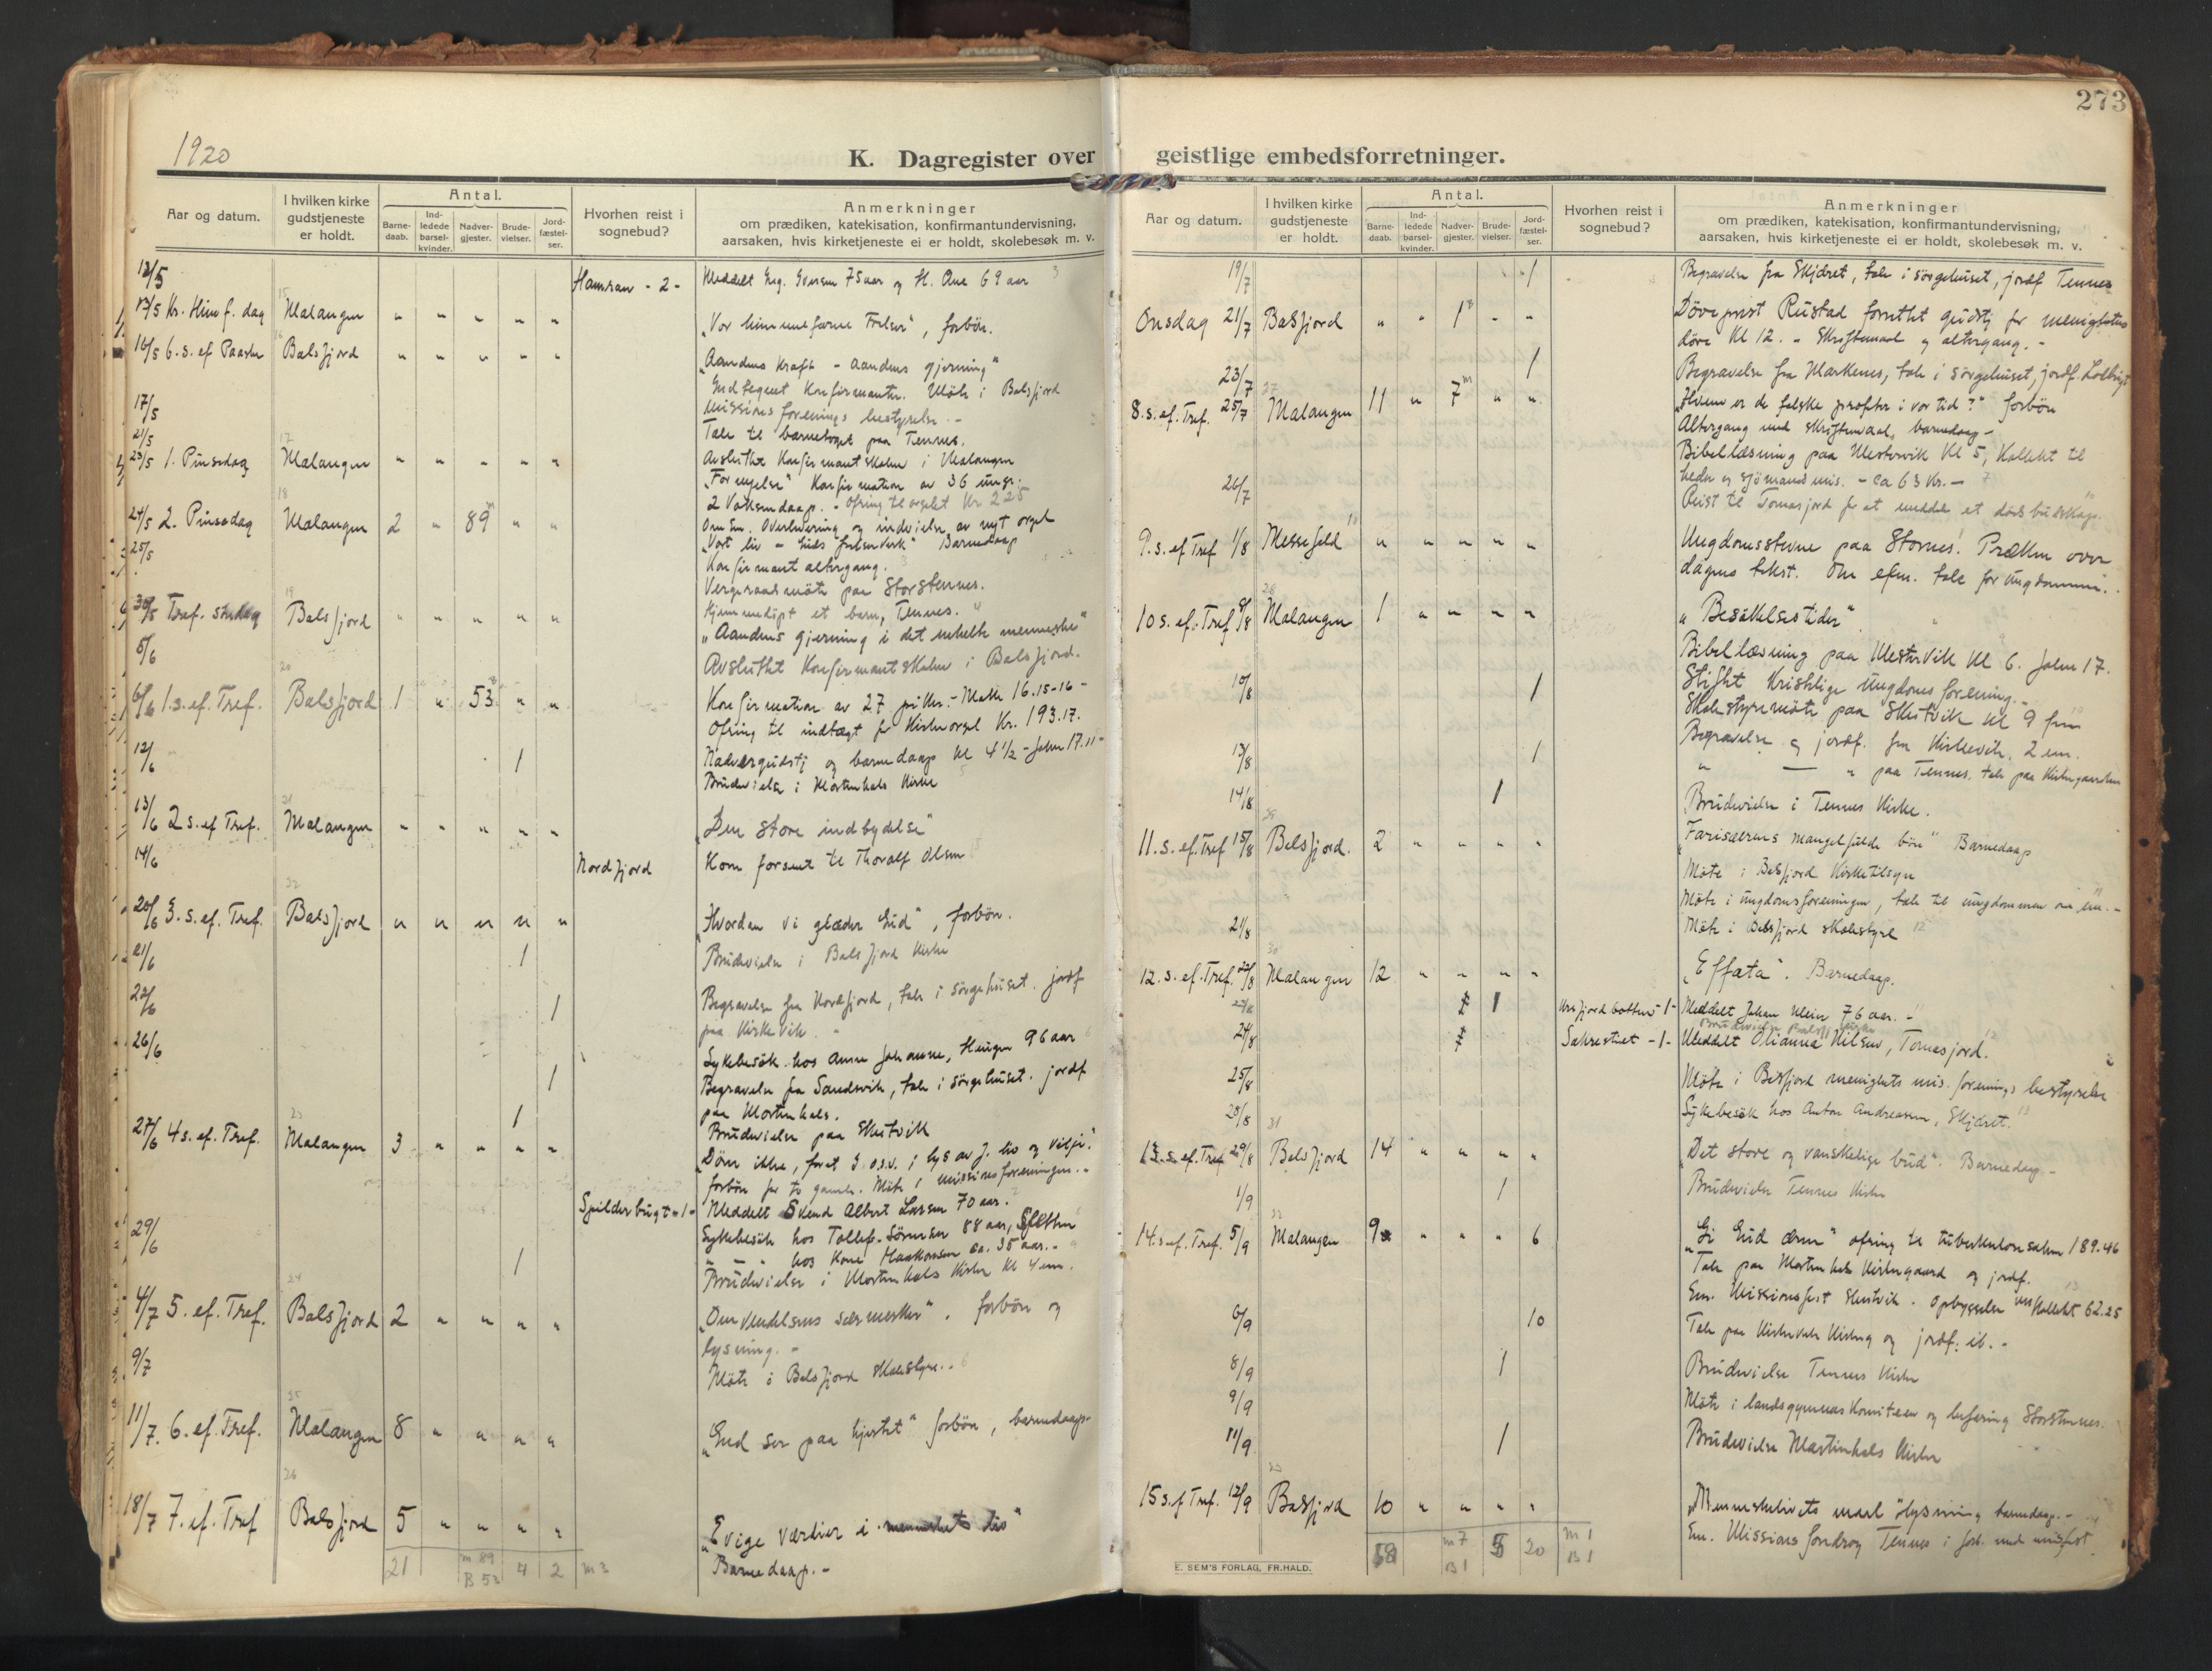 273
1920
K. Dagregister over geistlige embedsforretninger.
Aar og datum.
I hvilken kirke gudstjeneste er holdt.
Antal.
Barne-daab.
Ind-ledede barsel-kvinder.
Nadver-gjester.
Brude-vielser.
Jord-fæstel-ser.
Hvorhen reist i sognebud?
Anmerkninger
om prædiken, katekisation, konfirmantundervisning,
aarsaken, hvis kirketjeneste ei er holdt, skolebesøk m. v.
12/5 - 2 - Meddelt 75 aar og 69 aar
13/5 Kr. Himf. dag Malangen " " " " " „Vor himmelfarne Frelser", forbön.
16/5 6. s. ef Paaske Balsfjord " " " " " „Aandens kraft – aandens gjerning"
Indtegnet Konfirmanter. Möte i Balsfjord
17/5 missionsforenings bestyrelse. -
21/5 Tale til barnetoget paa Tennes.
23/5 1. Pinsedag Malangen " " " " " Avsluttet Konfirmantskolen i Malangen
„Fornyelse" Konfirmation av 36 unge.
2 Voksendaap. - Ofring til orgelet Kr 225
24/5 2. Pinsedag Malangen 2 " 89 " " Overlevering og indvielse av nyt orgel
25/5 „Vort liv – Guds frelserverk" Barnedaap
Konfirmant altergang.
Vergeraadsmöte paa Storstennes.
30/5 Tref. söndag Balsfjord " " " " " Hjemmedöpt et barn, Tennes.
„Aandens gjerning i det enkelte menneske"
5/6 Avsluttet Konfirmantskolen i Balsfjord.
6/6 1. s. ef. Tref. Balsfjord 1 " 53 " " Konfirmation av 27 - Matth 16.15-16 -
Ofring til indtægt for Kirkeorgel Kr. 193.17.
12/6 1 Nadvergudstj og barnedaap kl 4 1/2 - Johs 17.11 -
Brudevielse i Mortenhals Kirke
13/6 2 s. ef Tref. Malangen " " " " " „Den store indbydelse"
14/6 Nordfjord Kom forsent til Thoralf Olsen
20/6 3. s. ef. Tref. Balsfjord " " " " " „Hvordan vi glæder Gud", forbön.
21/6 1 Brudevielse i Balsfjord Kirke
22/6 1 Begravelse fra Nordfjord, tale i sörgehuset. jordf
paa Kirkevik.
26/6 Sykebesök hos Anne Johanne, 96 aar
1 Begravelse fra Sandsvik, tale i sörgehuset. jordf
paa Mortenhals.
1 Brudevielse paa Skutvik
27/6 4 s. ef. Tref. Malangen 3 " " " " „Döm ikke, foret I o.s.v. i lys av J. liv og vilje."
forbön for to gamle. Möte i missionsforeningen. -
Spilderbugt - 1 - Meddelt Svend Albert Larsen 70 aar.
29/6 Sykebesök hos Tollef Sörensen 88 aar, Sletten
" - " hos Kone Haakonsen ca. 35 aar. -
1 Brudevielse i Mortenhals Kirke kl 4 em.
4/7 5. ef. Tref. Balsfjord 2 " " " " „Omvendelsens særmerker". forbön og
lysning. -
9/7 Möte i Balsfjord Skolestyre. -
11/7. 6. ef. Tref. Malangen 8 " " " " „Gud ser paa hjertet" forbön, barnedaap -
18/7 7. ef. Tref Balsfjord 5 " " " " „Evige værdier i menneskets liv"
Barnedaap. -
21 m 89 B 53 4 2 m 3
Aar og datum.
I hvilken kirke gudstjeneste er holdt.
Antal.
Barne-daab.
Ind-ledede barsel-kvinder.
Nadver-gjester.
Brude-vielser.
Jord-fæstel-ser.
Hvorhen reist i sognebud?
Anmerkninger
om prædiken, katekisation, konfirmantundervisning,
aarsaken, hvis kirketjeneste ei er holdt, skolebesøk m. v.
19/7 1 Begravelse fra Skjæret, tale i sörgehuset, jordf Tennes
Onsdag 21/7 Balsfjord " " 1 " " Döveprest Rustad forrettet gudstj for menighetens
döve kl 12. - Skriftemaal og altergang. -
23/7 1 Begravelse fra Markenes, tale i sörgehuset, jordf.
8. s. ef. Tref. 25/7 Malangen 11 " 7 " " „Hvem er de falske profeter i vor tid?" forbön
Altergang med skriftemaal, barnedaap -
Bibellæsning paa Mestervik kl 5, kollekt til
sjömandsmis. - ca 63 Kr. -
26/7 Reist til Tomasjord for at meddele et dödsbudskap.
9. s. ef Tref 1/8 Messefald " " " " " Ungdomsstevne paa Stornes! Præken over
dagens tekst. efm. tale for ungdommen.
10 s. ef. Tref 8/8 Malangen 1 " " " " „Besökelsestider"
Bibellæsning paa Mestervik kl 6. Johs 17.
Stiftet Kristelige Ungdomsforening. -
10/8 1 Skolestyremöte paa Skutvik kl 9 fm
Begravelse og jordf. fra Kirkevik, 2 em.
13/8 1 " — " paa Tennes. tale paa Kirkegaarden
14/8 1 Brudevielse i Tennes Kirke.
11. s. ef. Tref 15/8 Balsfjord. 2 " " " " „Farisæerens mangelfulde bön" Barnedaap
Möte i Balsfjord Kirketilsyn
Möte i ungdomsforeningen, tale til ungdommen
21/8 Möte i Balsfjord skolestyre
12. s. ef. Tref. 22/8 Malangen 12 " " " " „Effata". Barnedaap.
23/8 1 - 1 - Meddelt Johan 76 aar. -
24/8 Sakrestiet - 1 - Meddelt Olianna Nilsen, Tomasjord.
25/8 Möte i Balsfjord menighets mis. forenings bestyrelse
28/8 Sykebesök hos Anton Andreassen, Skjæret.
13. s. ef. Tref 29/8 Balsfjord 14 " " " " „Det store og vanskelige bud". Barnedaap. -
1/9 1 Brudevielse Tennes Kirke
14. s. ef. Tref. 5/9 Malangen 9 " " " 6 „Gi Gud æren" ofring til tuberkulosesaken 189.46
Tale paa Mortenhals Kirkegaard og jordf.
Em. Missionsfest Skutvik. Opbyggelse Kollekt 62.25
6/9 10 Tale paa Kirkevik Kirkeg og jordf. ib. -
8/9 1 Brudevielse Tennes Kirke
9/9 Möte i landsgymnaskomiteen og befaring Storstennes.
11/9 1 Brudevielse Mortenhals Kirke
15 s. ef Tref. 12/9 Balsfjord 10 " " " " „Menneskelivets maal" lysning barnedaap. -
Em. Missionsforedrag Tennes i forb. med misfest
m 7 B 1 5 20 m 1 B 1
E. SEM'S FORLAG, FR.HALD.